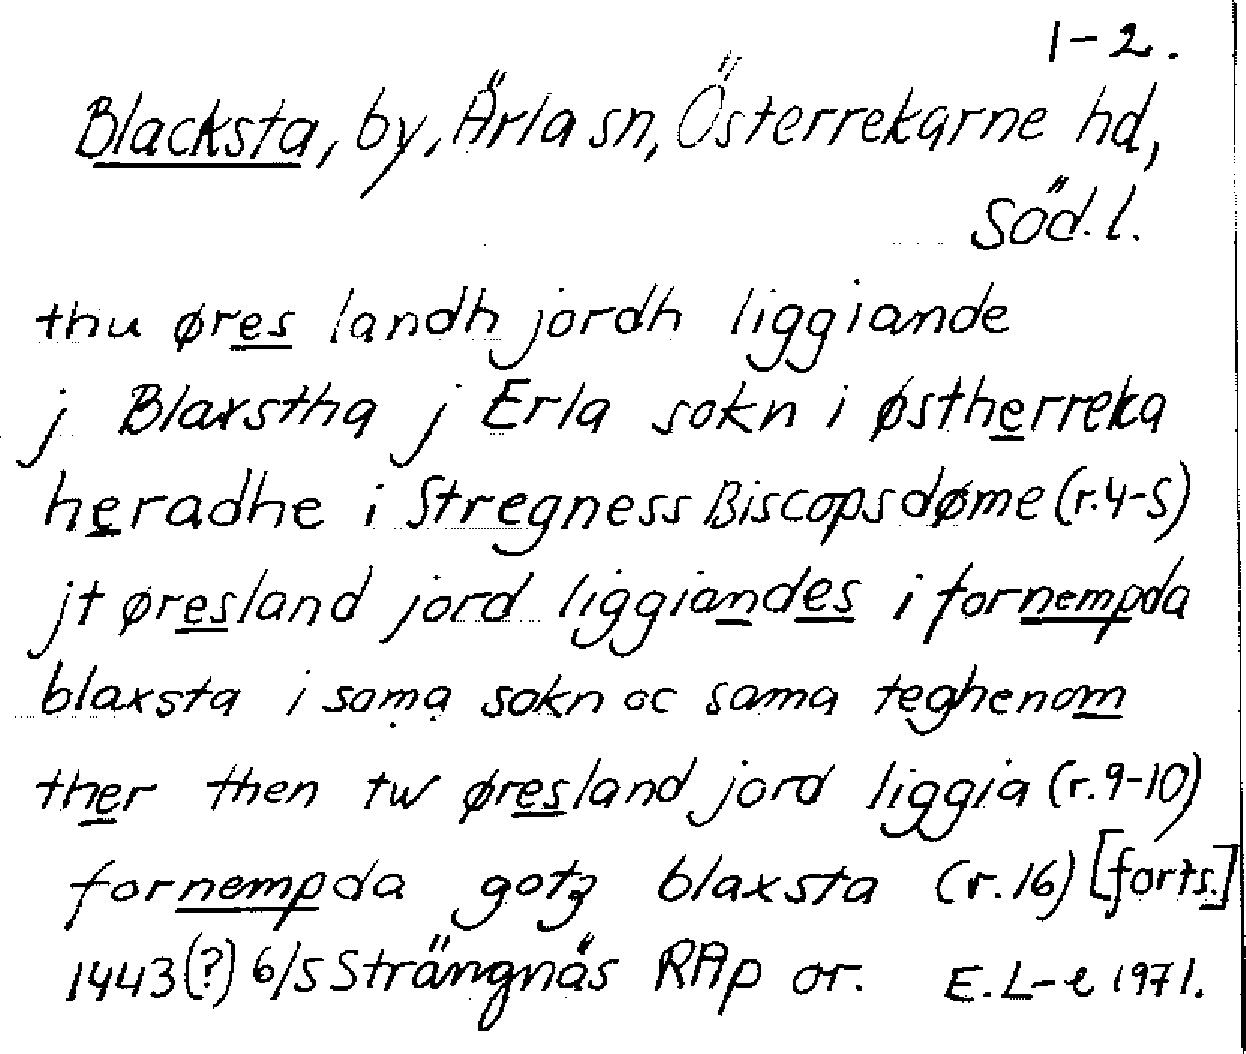 1-2.
Blacksta, by, Ärla sn, Österrekarne hd,
Söd. l.
thu øres landh jordh liggiande
j Blaxstha j Erla sokn i østherreka
heradhe i Stregness Biscopsdøme (r.4-5)
jt øresland jord liggiandes i fornempda
blaxsta i soma sokn oc sama teghenom
ther then tw øresland jord liggia (r.9-10)
fornempda gotz blaxsta (r.16) [forts.]
1443(?) 6/5 Strängnäs RAp or. E.L-e 1971.